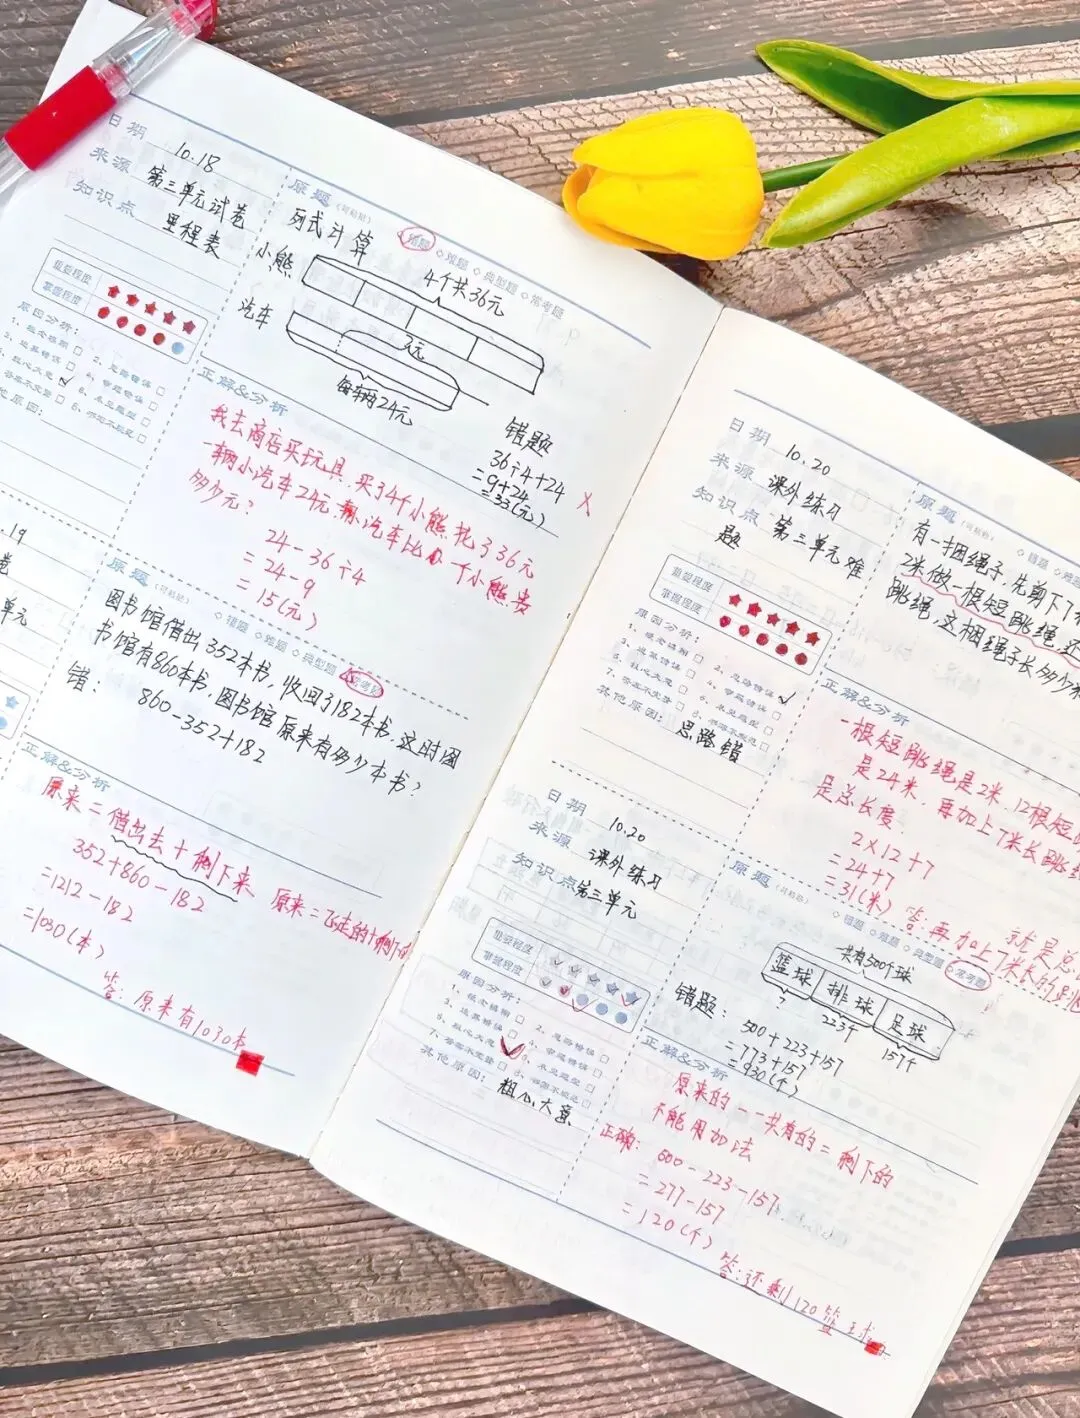 日期 10.18
来源 第三单元试卷
知识点 里程表
重要程度
掌握程度
原因分析:
1、概念模糊
2、思路错误
3、运算错误
4、审题错误
5、粗心大意
原题(可粘贴)
错题 ◇难题 ◇典型题 ◇常考题
列式计算
小熊
4个共36元
汽车
?元
每车辆24元
错题
36÷4+24
=9+24
=33(元)
正解&分析
我去商店买玩具,买了4个小熊花了36元
一辆小汽车24元,
汽车比
一个小熊贵
多少元?
24-36÷4
=24-9
=15(元)
.19
卷
单元
原题(可粘贴)
◇错题 ◇难题 ◇典型题 常考题
图书馆借出352本书,收回了182本书,这时图
书馆有860本书,图书馆原来有多少本书?
错:
860-352+182
正解&分析
原来=借出去+剩下来
原来=飞走的+剩下的
352+860-182
=1212-182
=1030(本)
答:原来有1030本
日期 10.20
来源 课外练习
知识点 第三单元难
题
重要程度
掌握程度
原因分析:
1、概念模糊
2、思路错误
3、运算错误
4、审题错误
5、粗心大意
7、答案不完整
其他原因:
思路错
原题(可粘贴)
◇错题
有一捆绳子,先剪下了
2米做一根短跳绳,还
跳绳,这捆绳子长多少米
正解&分析
一根短跳绳是2米,12根短
是24米,再加上7米长跳绳
是总长度.
2×12+7
=24+7
=31(米)
答:再加上7米长的跳
就是总
日期 10.20
来源 课外练习
知识点 第三单元
重要程度
掌握程度
原因分析:
1、概念模糊
2、思路错误
3、运算错误
4、审题错误
5、粗心大意
7、答案不完整
其他原因:
粗心大意
原题(可粘贴)
◇错题 ◇难题 ◇典型题 ◇常考题
共有500个球
篮球 排球 足球
?
223个
157个
错题:
500+223+157
=773+157
=930(个)
正解&分析
原来的一一共有的=剩下的
不能用加法
正确:
500-223-157
=277-157
=120(个)
答:还剩120篮球